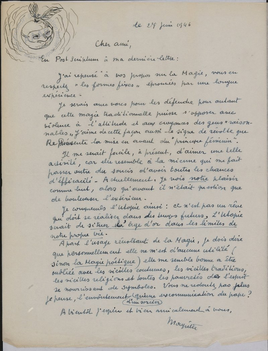 le 27 juin 1946
Cher ami,
En Post Scriptum à ma dernière lettre:
J'ai repensé à vos propos sur la Magie, vous en
respectez "les formes fixes" éprouvées par une longue
expérience.
Je serais avec vous pour les défendre pour autant
que cette magie traditionnelle puisse s'opposer avec
violence à l'attitude et aux croyances des gens "raison-
nables". J'aime de cette façon aussi le signe de révolte que
représente la mise en avant du principe féminin.
Il me serait facile, à présent, d'aimer une telle
activité, car elle ressemble à la mienne qui me fait
porter autre des soucis d'avoir toutes les chances
d'efficacité. Actuellement, je vois notre
comme but, alors qu'avant il n'était question que
de bouleverser l'existence.
Je comprends l'utopie ainsi: et n'est pas un rêve
qui doit se réaliser dans des temps futurs, l'utopie
serait de situer l'âge d'or dans les limites de
notre propre vie.
A part l'usage révoltant de la Magie, je dois dire
que personnellement elle ne m'est d'aucune utilité (
sinon la Magie poétique) elle me semble bonne à être
oubliée avec les vieilles coutumes, les vieilles traditions,
les vieilles religions et toutes les pauvretés de l'esprit
se nourrissant de symboles. Vous ne redoutez pas plus
je pense, l'envoûtement qu'une excommunication du pape?
A bientôt j'espère et bien amicalement à vous,
Magritte